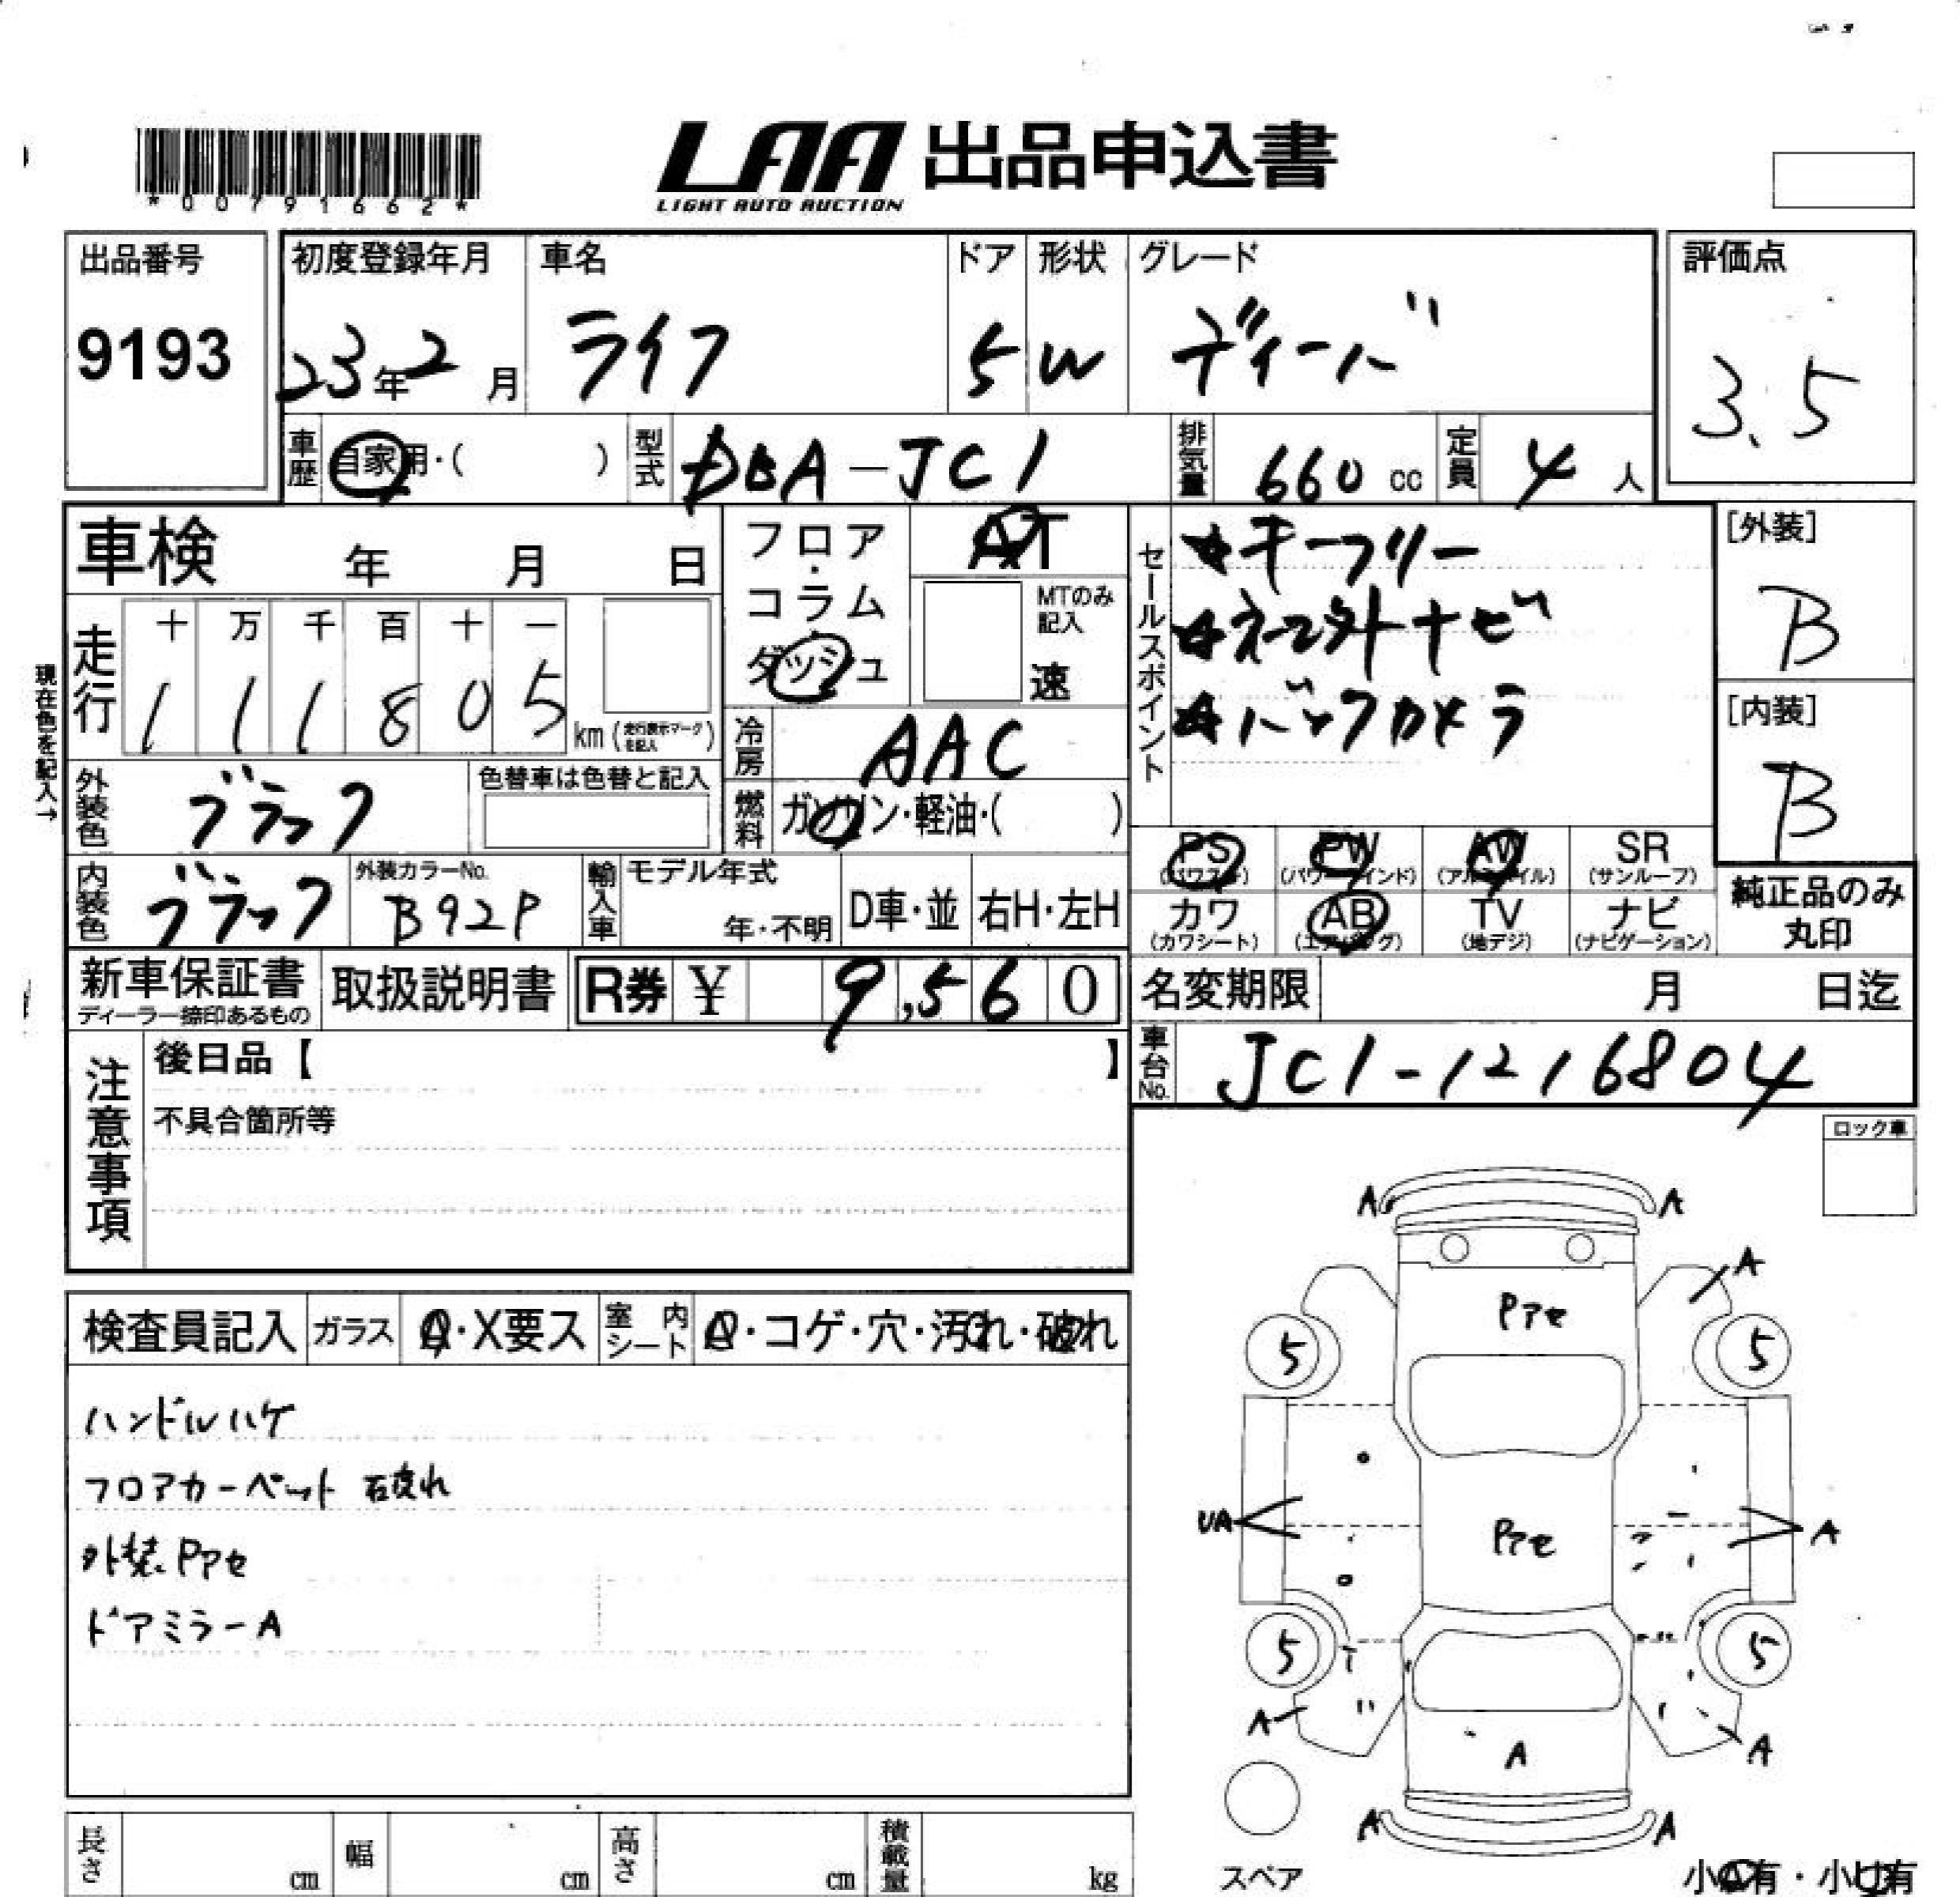 *00791662*
LAA 出品申込書
LIGHT AUTO AUCTION
出品番号
9193
初度登録年月
23年2月
車名
ライフ
ドア
5
形状
W
グレード
ディーバ
評価点
3.5
車歴
自家用・( )
型式
DBA-JC1
排気量
660 cc
定員
4 人
車検 年 月 日
フロア・コラム・ダッシュ
AT
MTのみ記入
速
セールスポイント
☆キーフリー
☆ネコ外ナビ
☆バックカメラ
[外装]
B
[内装]
B
現在色を記入→
走行
十 万 千 百 十 一
1 1 1 8 0 5
km (走行表示マークを記入)
冷房
AAC
外装色
ブラック
色替車は色替と記入
燃料
ガソリン・軽油・( )
PS PW AW SR
(パワステ) (パワーウインド) (アルミホイル) (サンルーフ)
カワ AB TV ナビ
(カワシート) (エアバッグ) (地デジ) (ナビゲーション)
純正品のみ
丸印
内装色
ブラック
外装カラーNo.
B92P
輸入車
モデル年式
年・不明
D車・並
右H・左H
新車保証書
ディーラー捺印あるもの
取扱説明書
R券 ¥ 9,560
名変期限 月 日迄
車台No.
JC1-1216804
注意事項
後日品【 】
不具合箇所等
ロック車
検査員記入
ガラス
A・X要ス
室内シート
・コゲ・穴・汚れ・破れ
ハンドルハゲ
フロアカーペット 破れ
外装Pアセ
ドアミラーA
A A
A
Pアセ
5 5
UA
Pアセ
A
5 5
A
A
A
A A
長さ cm
幅 cm
高さ cm
積載量 kg
スペア
小A有・小U有